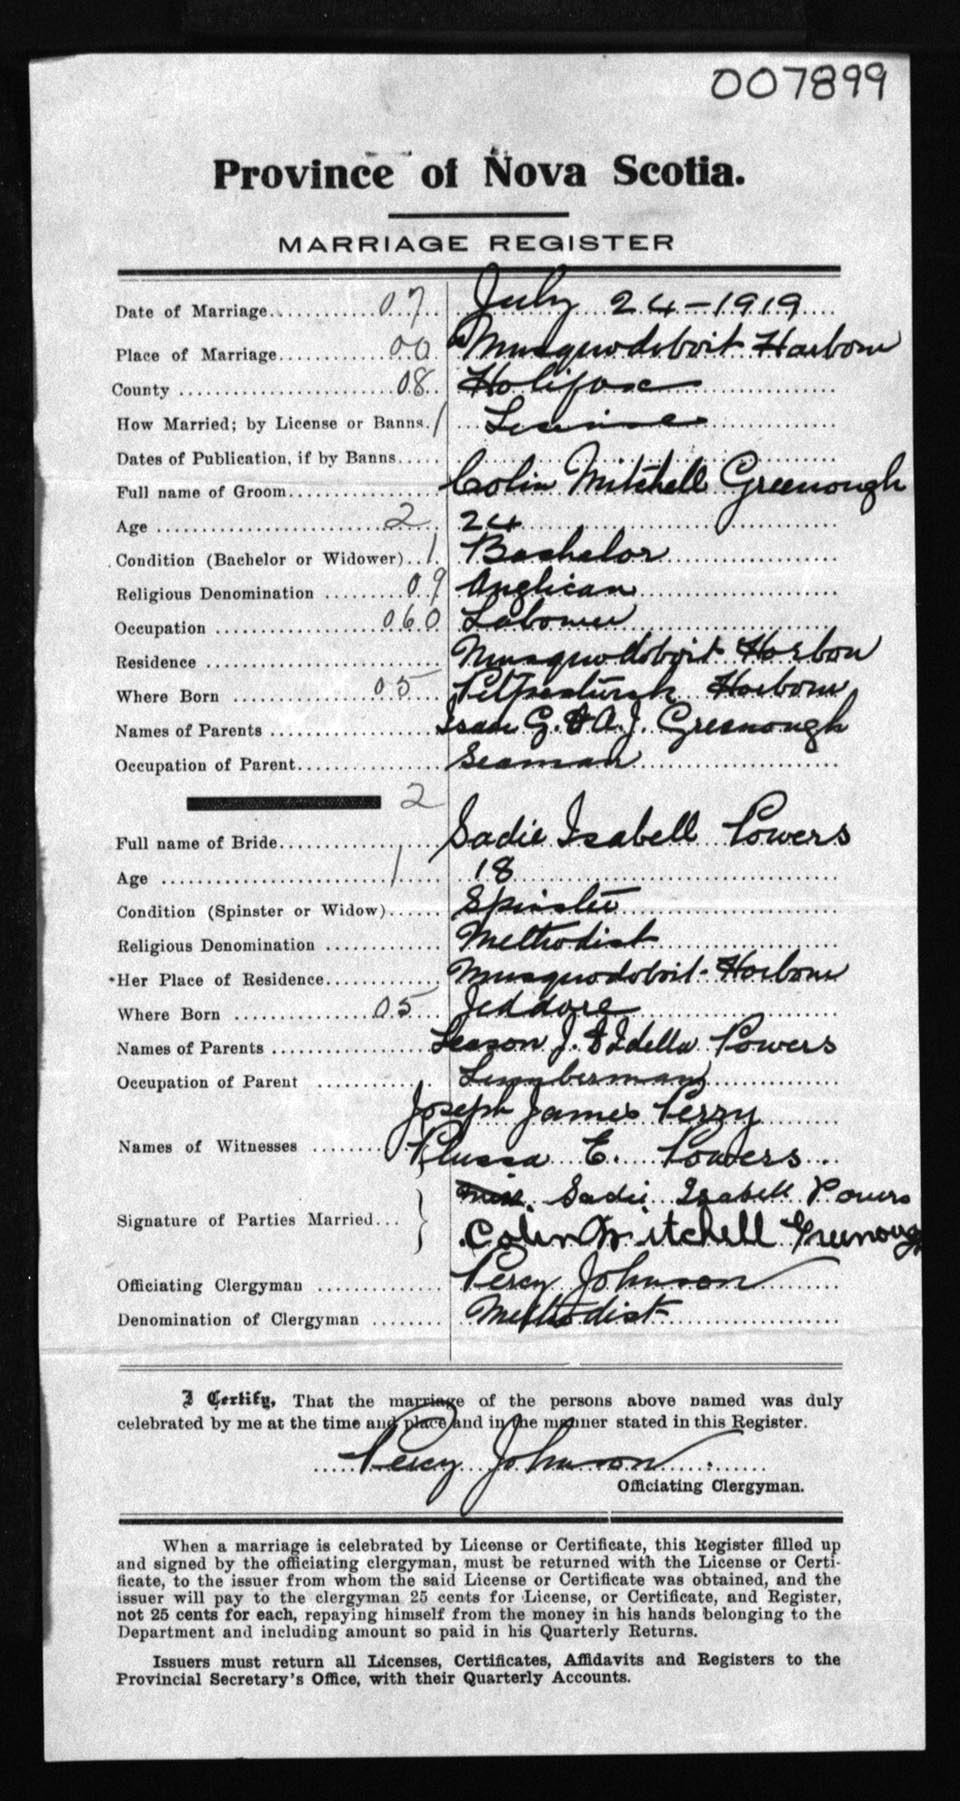 007899
Province of Nova Scotia.
MARRIAGE REGISTER
Date of Marriage 07 July 24-1919
Place of Marriage 00 Musquodoboit Harbour
County 08 Halifax
How Married; by License or Banns. 1 License
Dates of Publication, if by Banns
Full name of Groom Colin Mitchell Greenough
Age 2 24
Condition (Bachelor or Widower) 1 Bachelor
Religious Denomination 09 Anglican
Occupation 060 Labourer
Residence Musquodoboit Harbour
Where Born 05 Petpeswick Harbour
Names of Parents G. & A. J. Greenough
Occupation of Parent Seaman
2
Full name of Bride Sadie Isabell Powers
Age 1 18
Condition (Spinster or Widow) Spinster
Religious Denomination Methodist
Her Place of Residence Musquodoboit-Harbour
Where Born 05 Jeddore
Names of Parents Leason J. & Idella Powers
Occupation of Parent Lumberman
Joseph James
Names of Witnesses E. Powers
Sadie Isabell Powers
Signature of Parties Married Colin Mitchell Greenough
Officiating Clergyman Percy Johnson
Denomination of Clergyman Methodist
I Certify, That the marriage of the persons above named was duly
celebrated by me at the time and place and in the manner stated in this Register.
Percy Johnson
Officiating Clergyman.
When a marriage is celebrated by License or Certificate, this Register filled up
and signed by the officiating clergyman, must be returned with the License or Certi-
ficate, to the issuer from whom the said License or Certificate was obtained, and the
issuer will pay to the clergyman 25 cents for License, or Certificate, and Register,
not 25 cents for each, repaying himself from the money in his hands belonging to the
Department and including amount so paid in his Quarterly Returns.
Issuers must return all Licenses, Certificates, Affidavits and Registers to the
Provincial Secretary's Office, with their Quarterly Accounts.